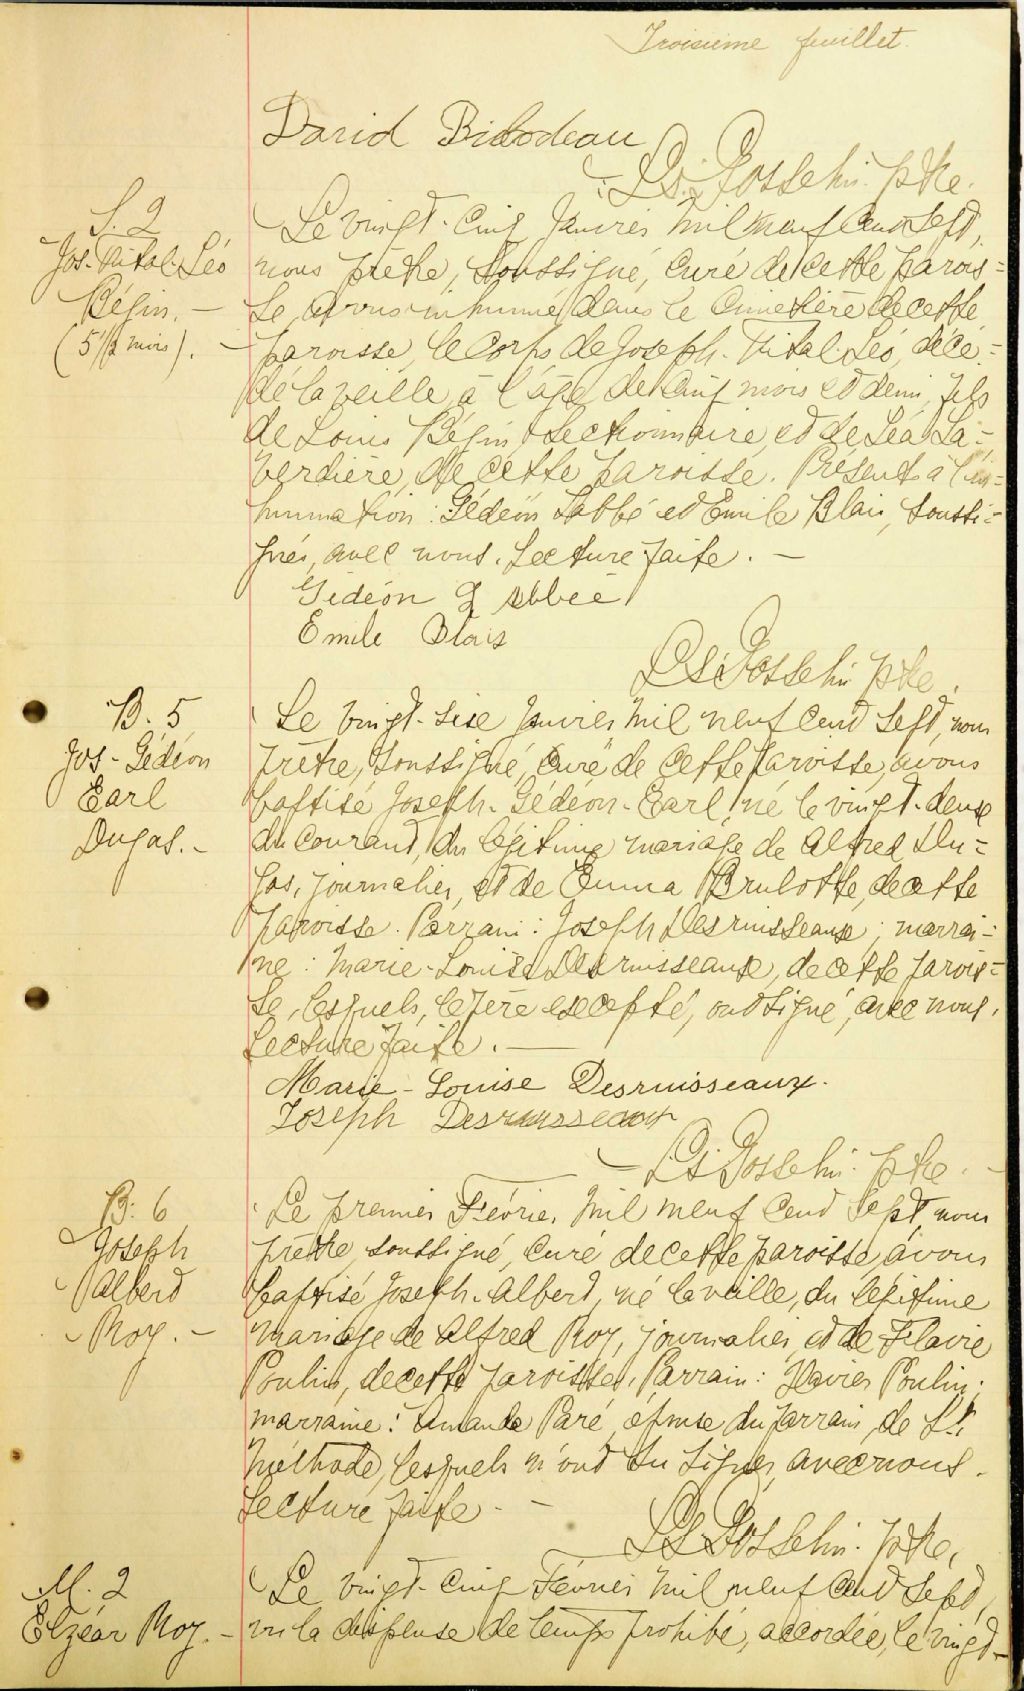 Troisième feuillet.
David Bilodeau
Ls. Gosselin. ptre.
S. 2
Jos-Vital-Léo
Bégin. -
(5 1/2 mois). -
Le vingt-cinq Janvier mil neuf cent sept,
nous prêtre, soussigné, curé de cette parois=
se, avons inhumé dans le cimetière de cette
paroisse, le corps de Joseph-Vital-Léo, décé=
dé la veille, à l'âge de cinq mois et demi, fils
de Louis Bégin, sectionnaire, et de Léa La=
verdière, de cette paroisse. Présents à l'in=
humation: Gédéon Labbé et Emile Blais, soussi=
gnés, avec nous. Lecture faite. -
Gédéon Labbée
Emile Blais
Ls. Gosselin ptre.
B. 5
Jos-Gédéon
Earl
Dugas. -
Le vingt-six Janvier mil neuf cent sept, nous
prêtre, soussigné, curé de cette paroisse, avons
baptisé Joseph-Gédéon-Earl, né le vingt-deux
du courant, du légitime mariage de Alfred Du=
gas, journalier, et de Emma Brulotte, de cette
paroisse. Parrain: Joseph Desruisseaux; marrai=
ne: Marie-Louise Desruisseaux, de cette parois=
se, lesquels, le père excepté, ont signé, avec nous.
Lecture faite. -
Marie-Louise Desruisseaux.
Joseph Desruisseaux
Ls. Gosselin. ptre. -
B. 6
Joseph
Albert
Roy. -
Le premier Février mil neuf cent sept, nous
prêtre, soussigné, curé de cette paroisse, avons
baptisé Joseph-Albert, né la veille, du légitime
mariage de Alfred Roy, journalier, et de Flavie
Poulin, de cette paroisse. Parrain: Xavier Poulin;
marraine: Amanda Paré, épouse du parrain, de St.
Méthode, lesquels n'ont su signer, avec nous.
Lecture faite. -
Ls. Gosselin. ptre.
M. 2
Elzéar Roy. -
Le vingt-cinq Février mil neuf cent sept,
vu la dispense de temps prohibé, accordée, le vingt-